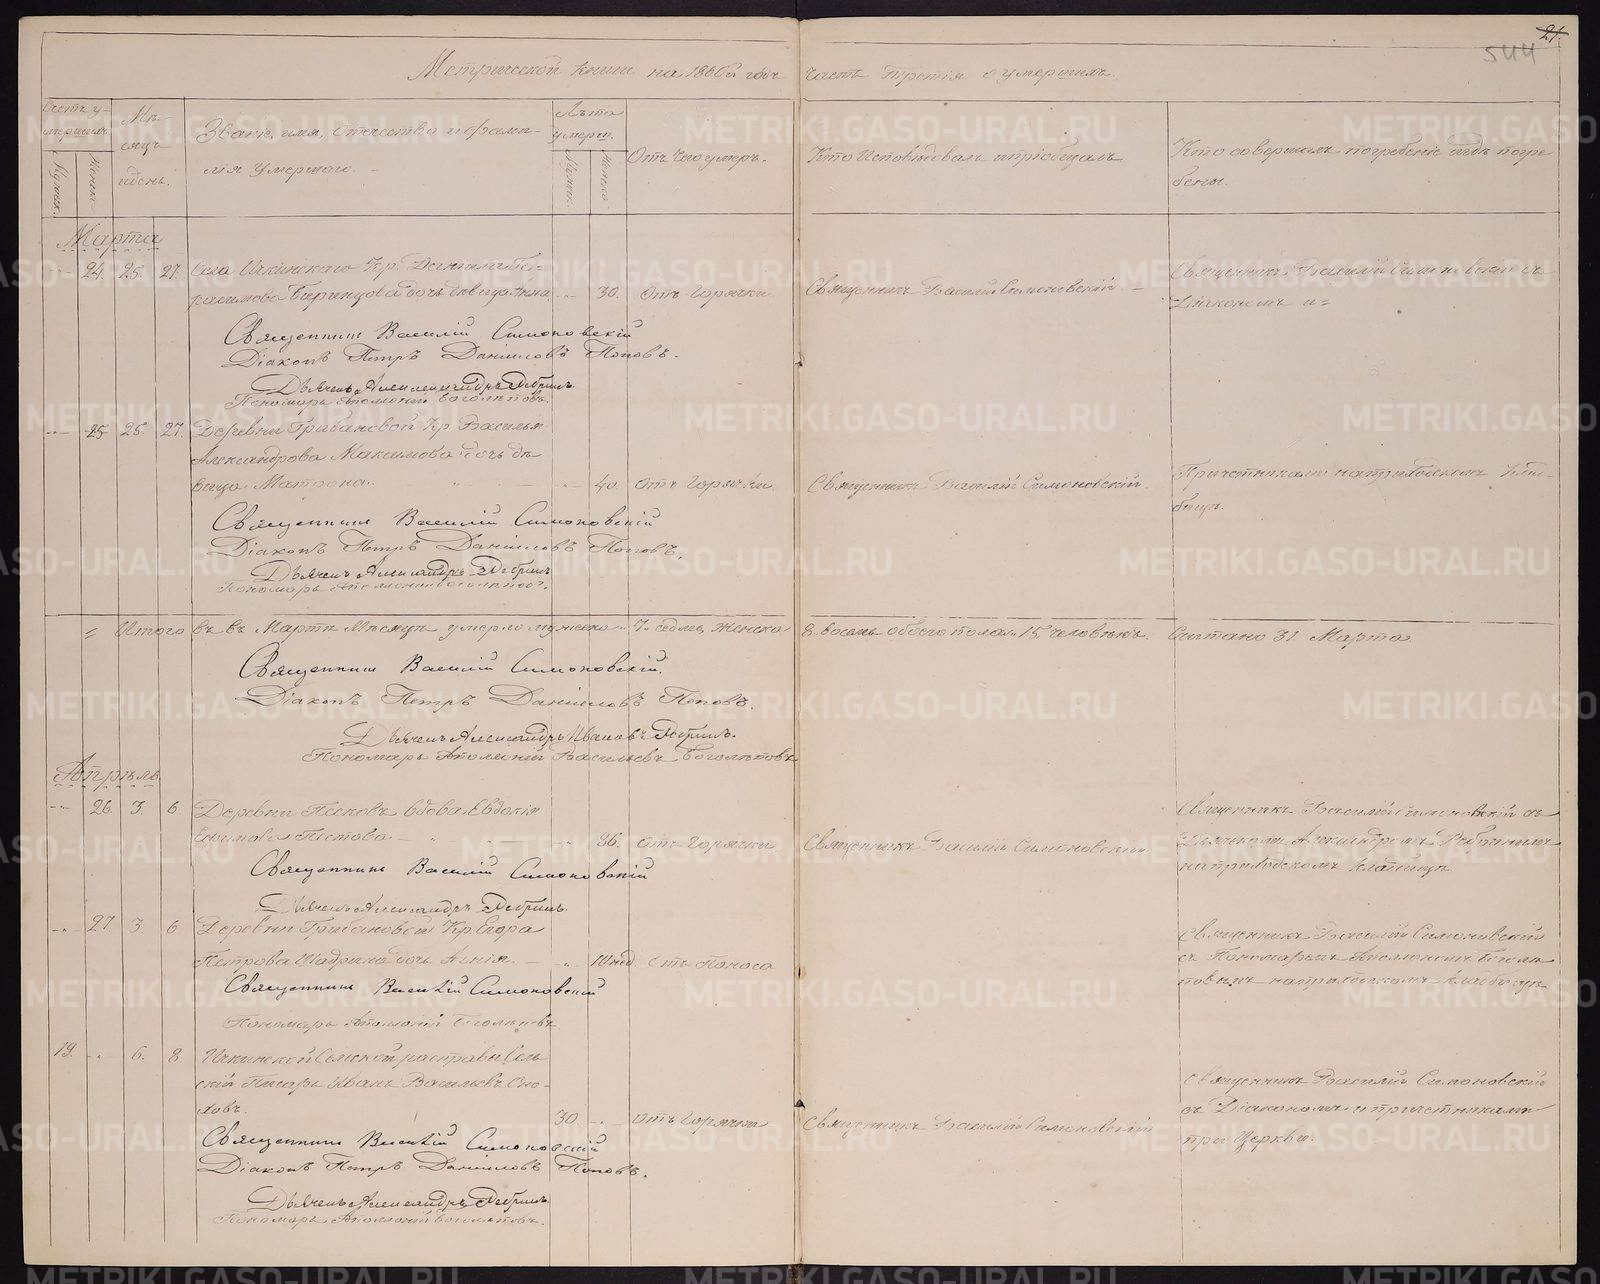 21.
544
Метрической книги на 1860й годъ часть третія о умершихъ.
Счетъ у-
мершихъ.
Мѣ-
сяцъ
и день.
Званіе, имя, отчество и фами-
лія умершаго.
Лѣта
умерш.
Отъ чего умеръ.
Кто исповѣдовалъ и пріобщалъ
Кто совершалъ погребеніе и гдѣ погре
бены.
Мужск.
Женск.
Мужск.
Женск.
Марта
24 25. 27. Села Ичкинскаго Кр. Даніила Ге-
расимова дочь дѣвица Анна 30. Отъ горячки Священникъ Василій Симоновскій
Священникъ Василій Симоновскій съ
Діакономъ и=
Священникъ Василій Симоновскій
Діаконъ Петръ Даниловъ Поповъ.
Дьячекъ Александръ Ребринъ
Пономарь Аполлоній Боголѣповъ.
25 25. 27. Деревни Грибановой Кр. Василья
Александрова Максимова дочь дѣ
вица Матрона 40. Отъ горячки Священникъ Василій Симоновскій.
Причетниками на приходскомъ клад-
бищѣ.
Священникъ Василій Симоновскій
Діаконъ Петръ Даниловъ Поповъ.
Дьячекъ Александръ Ребринъ
Пономарь Аполлоній Боголѣповъ.
= Итого въ Мартѣ Мѣсяцѣ умерло мужеска 7. седмь, Женска 8. восемь обоего пола 15. человѣкъ. Считано 31 Марта
Священникъ Василій Симоновскій.
Діаконъ Петръ Даниловъ Поповъ.
Дьячекъ Александръ Ивановъ Ребринъ.
Пономарь Аполлоній Васильевъ Боголѣповъ
Апрѣль
26. 3. 6. Деревни вдова Евдокія
Ефимова Пестова 36. Отъ горячки Священникъ Василій Симоновскій
Священникъ Василій Симоновскій съ
Дьячкомъ Александромъ Ребринымъ
на приходскомъ кладбищѣ
Священникъ Василій Симоновскій
Дьячекъ Александръ Ребринъ.
27 3. 6 Деревни Грибановой Кр. Егора
Петрова Шадрина дочь Агнія 10 нед. Отъ поноса
Священникъ Василій Симоновскій
съ Пономаремъ Аполлоніемъ Боголѣ
повымъ на приходскомъ кладбищѣ
Священникъ Василій Симоновскій
Пономарь Аполлоній Боголѣповъ
19. 6. 8. Ичкинской Сельской расправы Сель
скій Писарь Иванъ Васильевъ
30. Отъ горячки Священникъ Василій Симоновскій
Священникъ Василій Симоновскій
съ Діакономъ и причетниками
при Церкви.
Священникъ Василій Симоновскій
Діаконъ Петръ Даниловъ Поповъ.
Дьячекъ Александръ Ребринъ
Пономарь Аполлоній Боголѣповъ.
METRIKI.GASO-URAL.RU